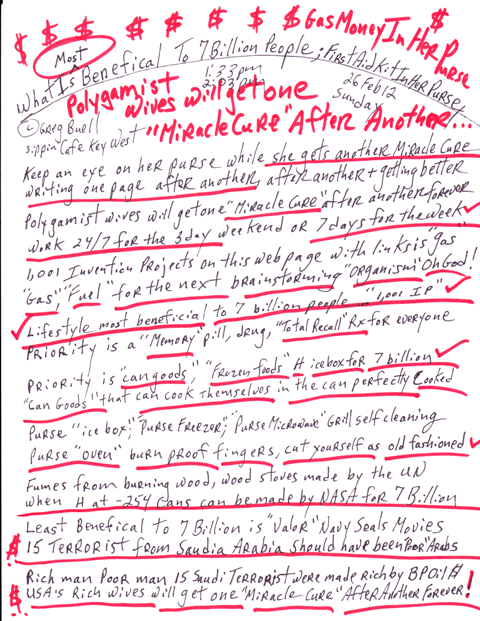 $ $ $ $ $ $ $ $ Gas Money In Her Purse $
Most
What Is Benefical To 7 Billion People; First Aid Kit In Her Purse,
1:33 pm
2:03 pm
26 Feb 12
Sunday
Polygamist
Wives will get one
© Greg Buell
sippin Cafe Key West
"Miracle Cure" After Another...
Keep an eye on her purse while she gets another Miracle Cure
writing one page after another, after another + getting better
Polygamist wives will get one "Miracle Cure" after another forever
Work 24/7 for the 3 day weekend or 7 days for the week ✓
1,001 Invention Projects on this web page with links is "gas"
"Gas" "Fuel" for the next brainstorming "organism" Oh God!
✓ Lifestyle most beneficial to 7 billion people... "1,001 IP" ✓
Priority is a "Memory" pill, drug, "Total Recall" Rx for everyone
Priority is "can goods", "Frozen Foods" H icebox for 7 billion ✓
"Can Goods" that can cook themselves in the can perfectly Cooked
Purse "ice box"; "Purse Freezer"; "Purse Microwave" Grill self cleaning
Purse "oven" burn proof fingers, cut yourself as old fashioned ✓
Fumes from burning wood, wood stoves made by the UN
when H at -254 Cans can be made by NASA for 7 Billion
Least Benefical to 7 Billion is "Valor" Navy Seals Movies
$ 15 Terrorist from Saudia Arabia should have been "Poor" Arabs
Rich man Poor man 15 Saudi Terrorist were made rich by BP Oil $
$ USA's Rich wives will get one "Miracle Cure" After Another Forever!